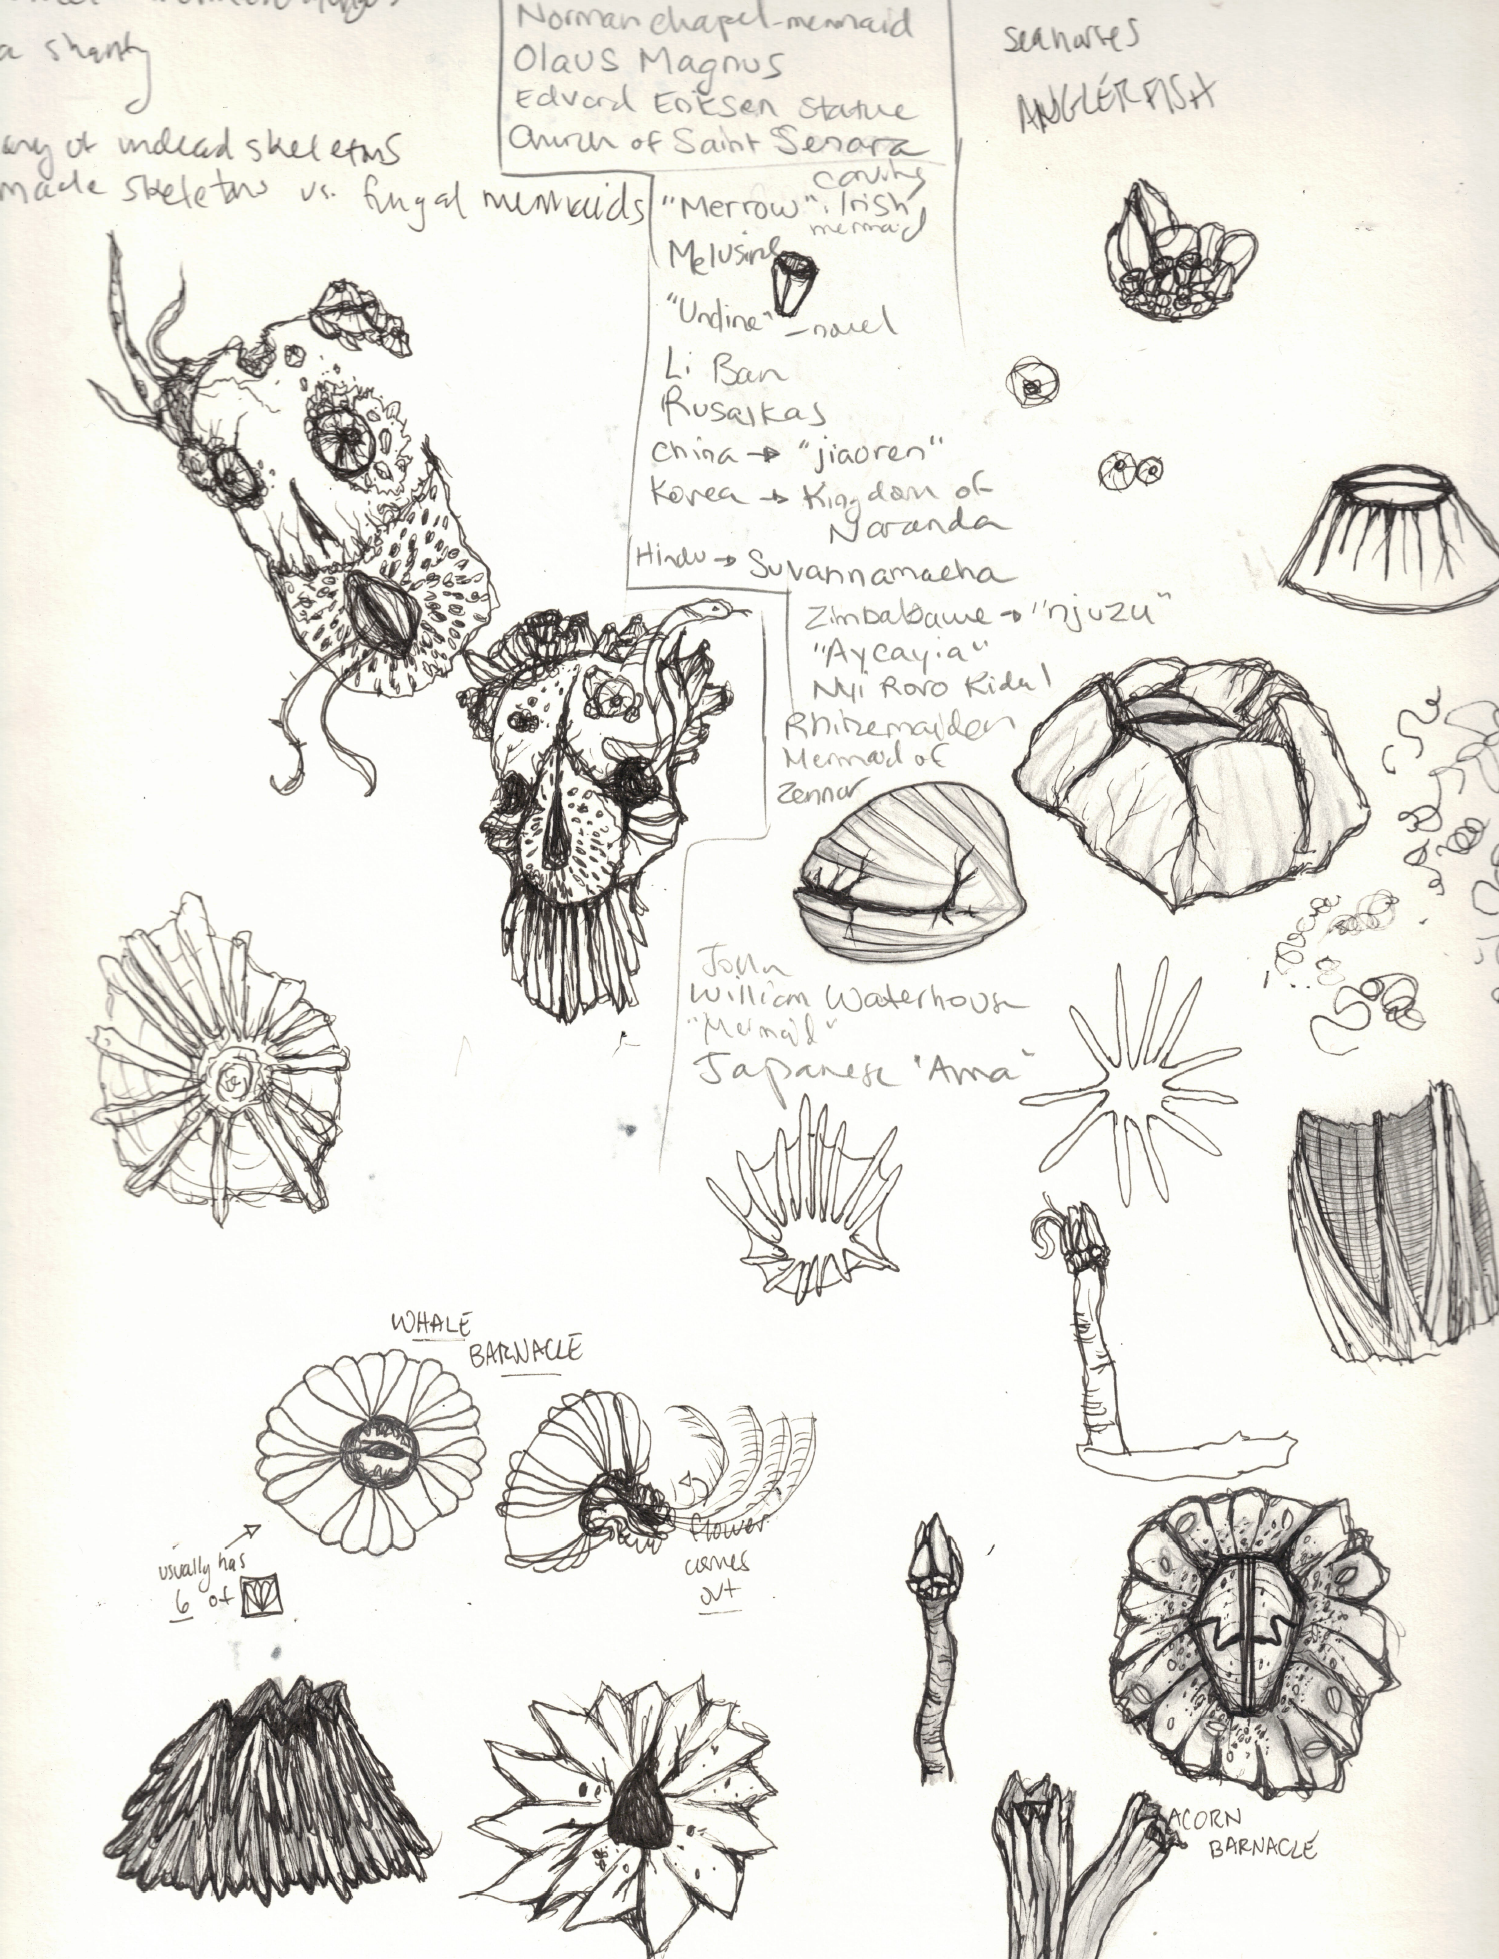 a shanty
army of undead skeletons
made skeletons vs. fungal mermaids
Norman chapel-mermaid
Olaus Magnus
Edvard Eriksen statue
Church of Saint Senara
carving
"Merrow": Irish
mermaid
Melusine
"Undine" - novel
Li Ban
Rusalkas
China → "jiaoren"
Korea → Kingdom of
Naranda
Hindu → Suvannamacha
Zimbabawe → "njuzu"
"Aycayia"
Nyi Roro Kidul
Rhinemaiden
Mermaid of
Zennor
John
William Waterhouse
"Mermaid"
Japanese "Ama"
seahorses
ANGLERFISH
WHALE
BARNACLE
usually has
6 of
flower
comes
out
ACORN
BARNACLE